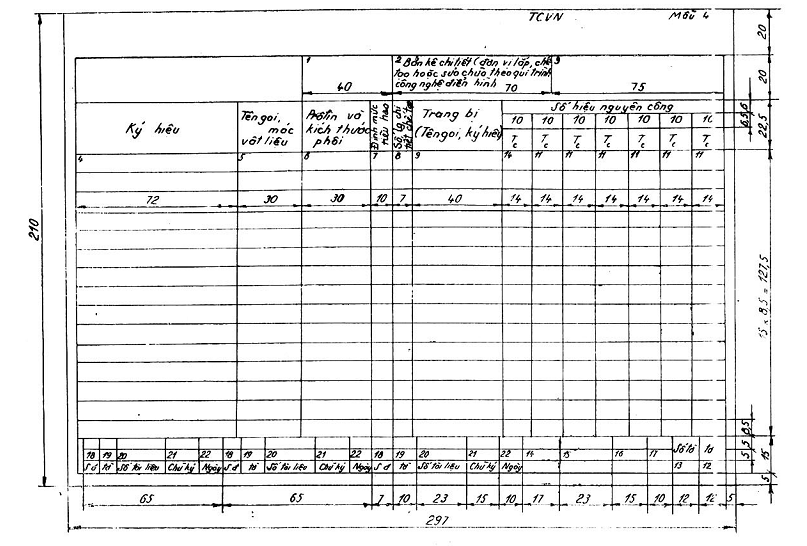 TCVN Mẫu 4
1
2 Bản kê chi tiết (đơn vị lắp, chế
tạo hoặc sửa chữa theo qui trình
công nghệ điển hình
3
40 70 75
Ký hiệu
Tên gọi,
mác
vật liệu
Profin và
kích thước
phôi
Định mức
tiêu hao
Trang bị
(Tên gọi, ký hiệu)
Số hiệu nguyên công
10 10 10 10 10 10 10
Tc Tc Tc Tc Tc Tc Tc
4 5 6 7 8 9 14 11 11 11 11 11 11
72 30 30 10 7 40 14 14 14 14 14 14 14
210
20
20
22,5
15 x 8,5 = 127,5
8,5
5 5
15
5
18 19 20 21 22 18 19 20 21 22 18 19 20 21 22 14 15 16 17 Số tờ tờ
Số tờ Số tài liệu Chữ ký Ngày S đ tờ Số tài liệu Chữ ký Ngày S đ tờ Số tài liệu Chữ ký Ngày 13 12
65 65 7 10 23 15 10 17 23 15 10 12 12 5
297